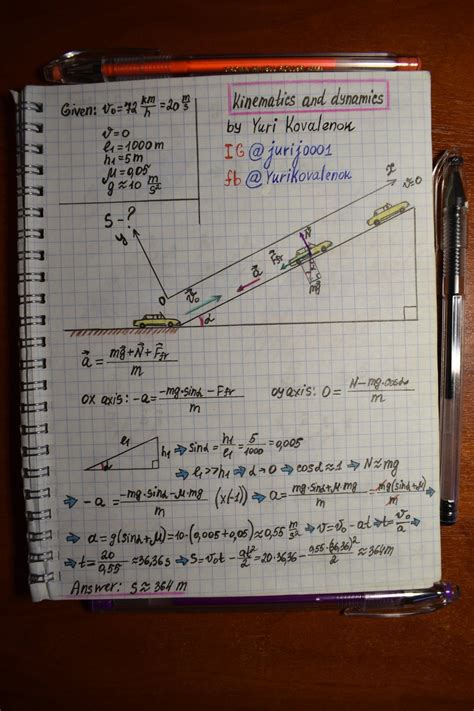 Given: v₀=72 km/h=20 m/s
v=0
l₁=1000m
h₁=5m
μ=0,05
g≈10 m/s²
S-?
Kinematics and dynamics
by Yuri Kovalenok
IG @jurij0001
fb @YuriKovalenok
y
O
x
v=0
v⃗₀
a⃗
F⃗fr
N⃗
mg⃗
α
a⃗ = (mg⃗+N⃗+F⃗fr)/m
ox axis: -a=(-mg·sinα-Ffr)/m
oy axis: 0=(N-mg·cosα)/m
l₁
h₁
α
⇒ sinα=h₁/l₁=5/1000=0,005
⇒ l₁>>h₁ ⇒ α→0 ⇒ cosα≈1 ⇒ N≈mg
⇒ -a=(-mg·sinα-μ·mg)/m (x(-1)) ⇒ a=(mg·sinα+μ·mg)/m=mg(sinα+μ)/m ⇒
⇒ a=g(sinα+μ)=10·(0,005+0,05)≈0,55 m/s² ⇒ v=v₀-at ⇒ t=v₀/a ⇒
⇒ t=20/0,55≈36,36s ⇒ S=v₀t-at²/2=20·36,36-0,55·(36,36)²/2≈364m
Answer: S≈364m